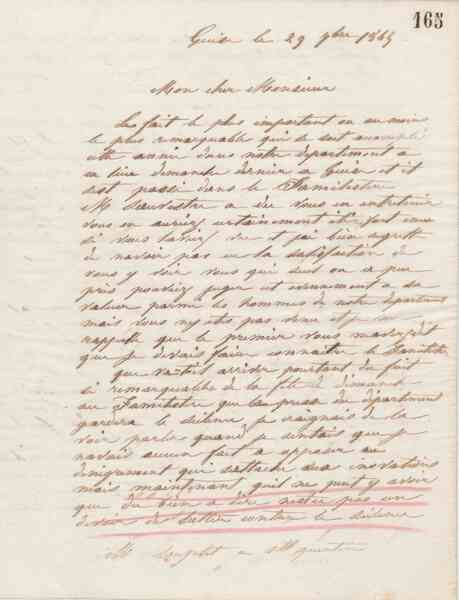 165
Guise le 29 9bre 1865
Mon cher Monsieur
Le fait le plus important ou au moins
le plus remarquable qui se soit accompli
cette année dans notre département a
eu lieu dimanche dernier a Guise et il
s'est passé dans le Familistère
M Sauvestre a du vous en entretenir
vous en auriez certainement été fort ému
si vous l'aviez vu et j'ai bien regretté
de n'avoir pas eu la satisfaction de
vous y voir vous qui seul ou a peu
près pouviez juger cet évènement a sa
valeur parmi les hommes de notre département
mais vous n'y êtes pas venu et je me
rappelle que le premier vous m'avez dit
que je devais faire connaitre le Familistère
que va-t-il arriver pourtant du fait
si remarquable de la fête de dimanche
au Familistère que la presse du département
gardera le silence je craignais de la
voir parler quand je sentais que je
n'avais aucun fait a opposer au
dénigrement qui s'attache aux inovations
mais maintenant qu'il ne peut y avoir
que du bien a dire n'est-ce pas un
devoir de lutter contre le silence
M Souplet a St quentin